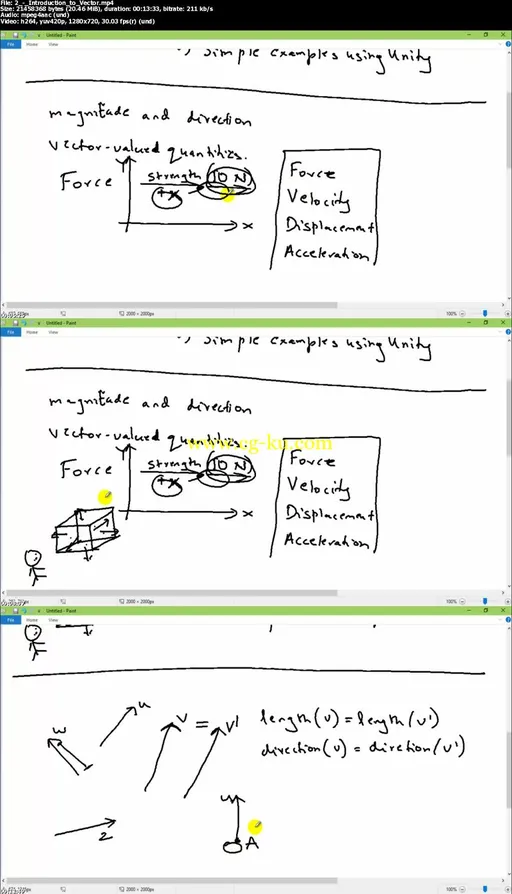 File: 2_-_Introduction_to_Vector.mp4
Size: 21458368 bytes (20.46 MiB), duration: 00:13:33, bitrate: 211 kb/s
Audio: mpeg4aac (und)
Video: h264, yuv420p, 1280x720, 30.03 fps(r) (und)
Untitled - Paint
File Home View
Simple examples using Unity
magnitude and direction
vector-valued quantities.
Force
Y
strength 10 N
+x
x
Force
Velocity
Displacement
Acceleration
2000 × 2000px
100%
Untitled - Paint
File Home View
Simple examples using Unity
magnitude and direction
vector-valued quantities.
www.cg-ku.com
Force
Y
strength 10 N
+x
x
Force
Velocity
Displacement
Acceleration
2000 × 2000px
100%
Untitled - Paint
File Home View
w
u
v = v'
length(v) = length(v')
direction(v) = direction(v')
z
A
100%